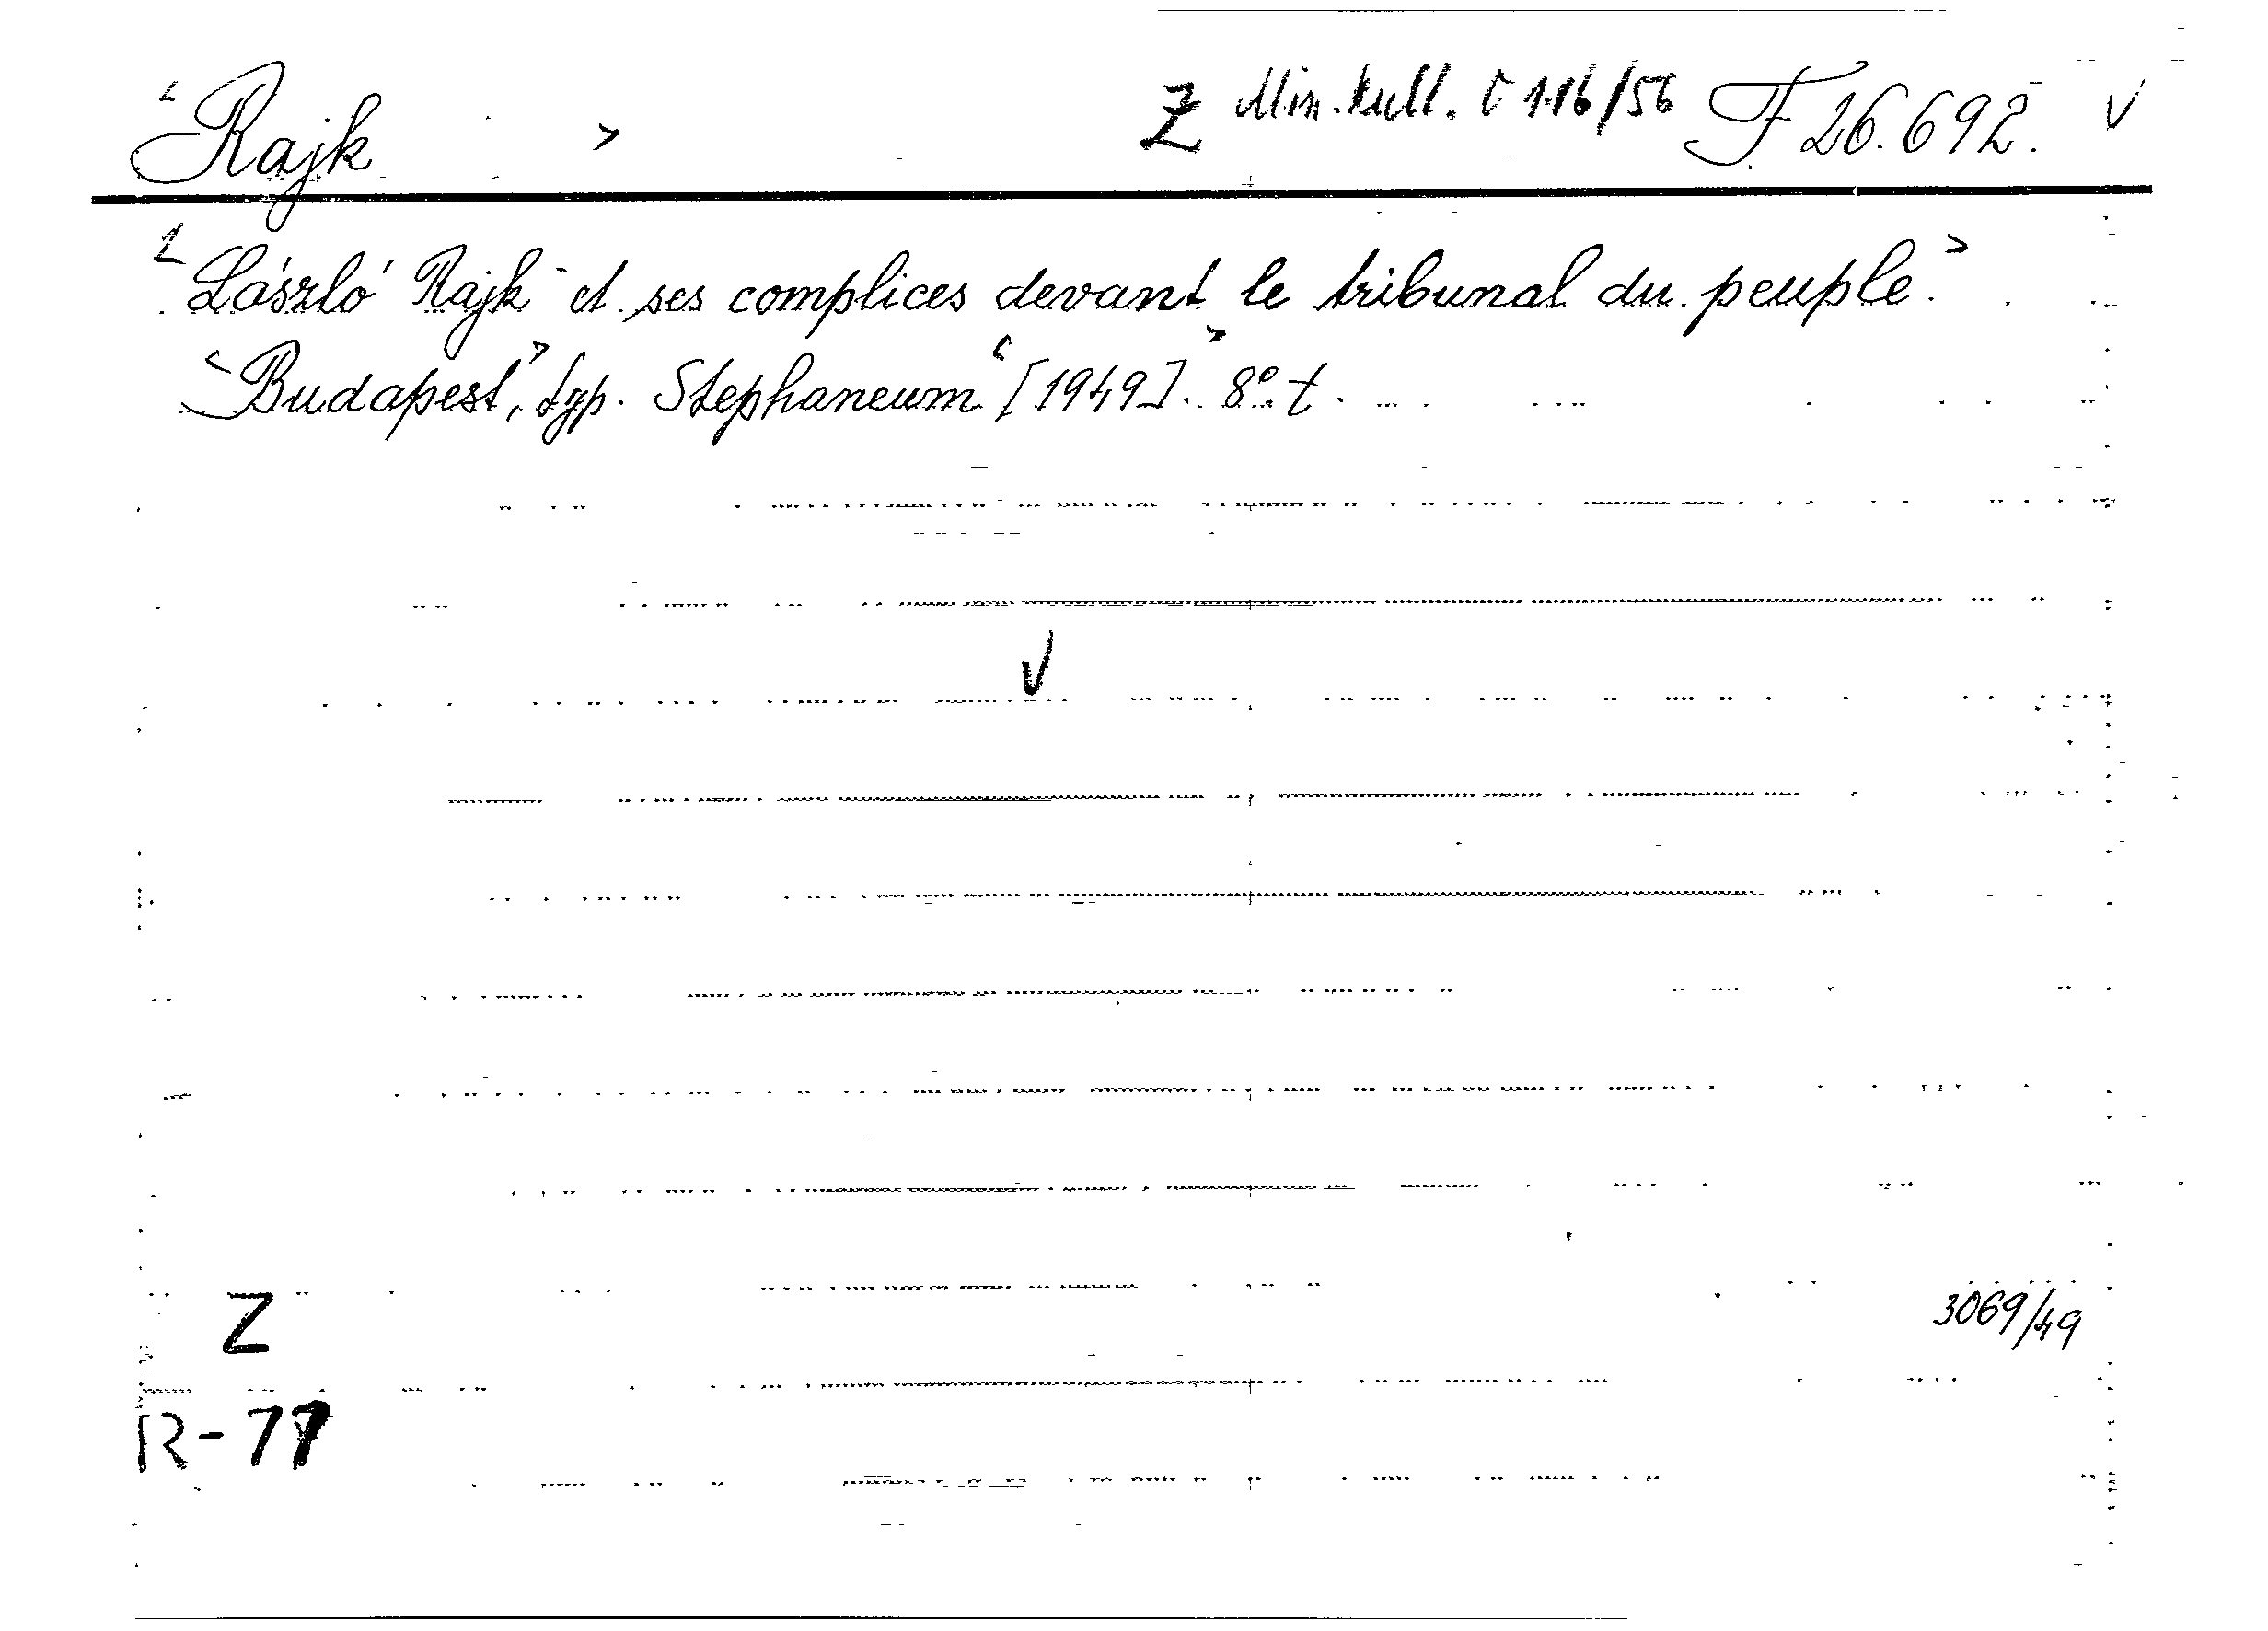 Rajk Z Min. kult. Č 116/56 F 26.692. V
László Rajk et ses complices devant le tribunal du peuple.
Budapest, typ. Stephaneum [1949]. 8° t.
V
Z
3069/49
R-77